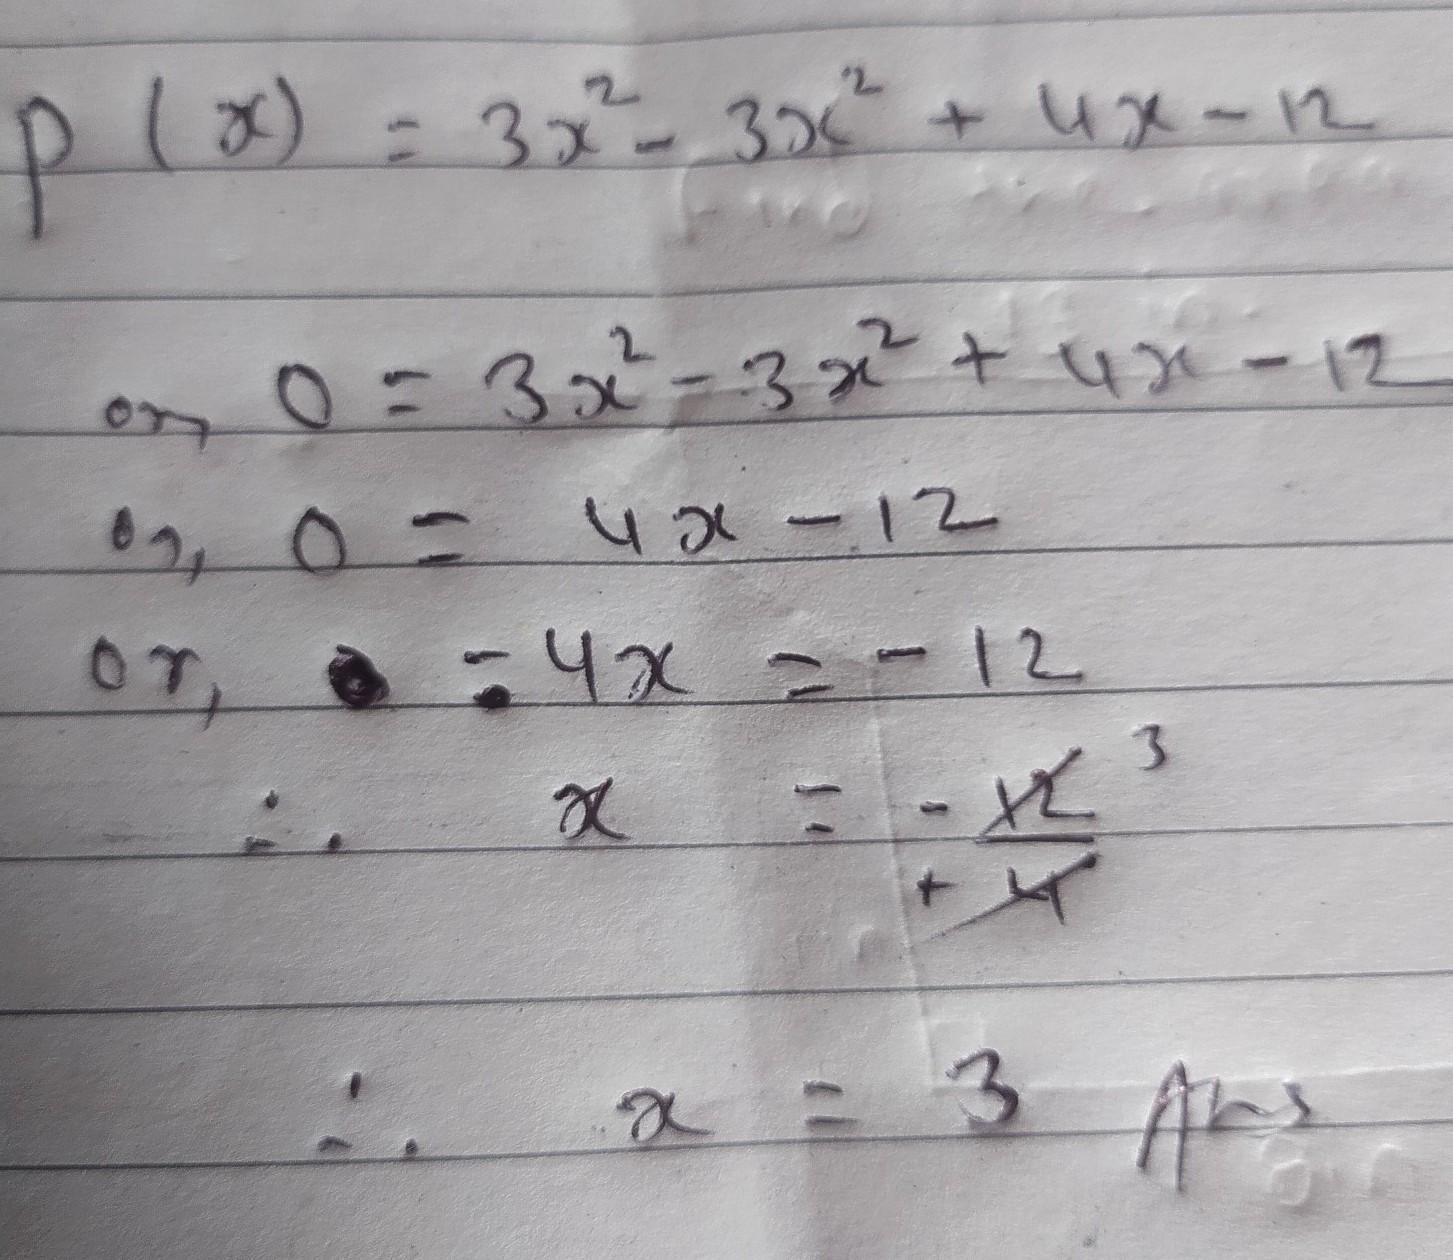 p(x) = 3x² - 3x² + 4x - 12
or, 0 = 3x² - 3x² + 4x - 12
or, 0 = 4x - 12
or, - 4x = - 12
∴ x = - 12 3
+ 4
∴ x = 3 Ans